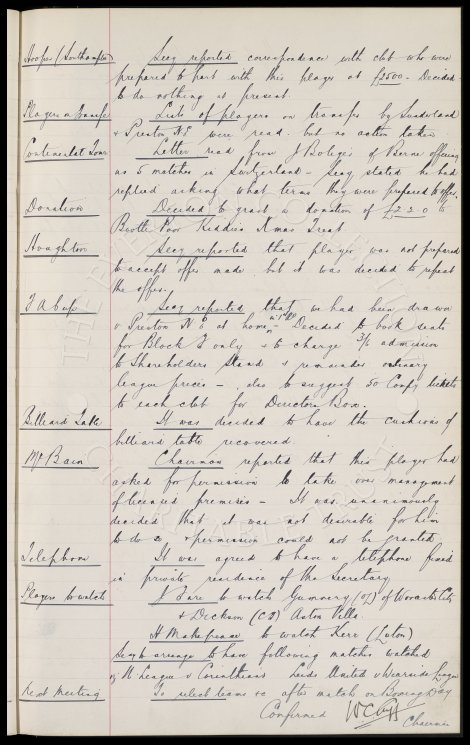 Hoops (Southampton) Secy reported correspondence with club who were
prepared to part with this player at £2500. Decided
to do nothing at present.
Players on transfer Lists of players on transfer by Sunderland
& Preston N E were read. but no action taken
Continental Tour Letter read from J of Berne offering
us 5 matches in Switzerland - Secy stated he had
replied asking what terms they were prepared to offer.
Donation Decided to grant a donation of £2.2.0 to
Bootle Poor Kiddies Xmas Treat.
Houghton Secy reported that player was not prepared
to accept offer made, but it was decided to repeat
the offer.
F A Cup Secy reported that we had been drawn
v Preston N E at home. Decided to book seats
for Block only & to charge 3/- admission
to Shareholders Stand & remainder ordinary
league prices - also to suggest 30 Comp tickets
to each club for Directors Box.
Billiard Table It was decided to have the cushions of
billiard table recovered.
McBain Chairman reported that this player had
asked for permission to take over management
of licensed premises - It was unanimously
decided that it was not desirable for him
to do so & permission could not be granted
Telephone It was agreed to have a telephone fixed
in private residence of the Secretary
Players to watch to watch of Worcester City
& Dickson (CH) Aston Villa.
H Makepeace to watch Kerr (Luton)
Secy to arrange to have following matches watched
N League v Corinthians Leeds United v Wearside League
Next Meeting To select teams &c after match on Boxing Day
Confirmed W C Cuff
Chairman